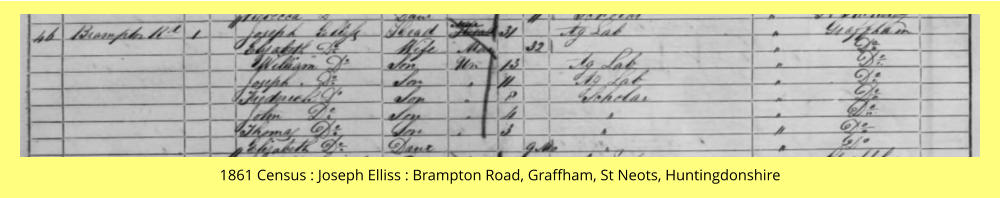 Rebecca Do Daur 11 Scholar "
46 Brampton Rd 1 Joseph Elliss Head Mar 31 Ag Lab " Graffham
Elizabeth Do Wife Mar 32 " Do
William Do Son Un 13 Ag Lab " Do
Joseph Do Son " 11 Ag Lab " Do
Frederick Do Son " 8 Scholar Do
John Do Son " 4 " " Do
Thomas Do Son " 3 " Do
Elizabeth Do Daur 9 Mo " Do
1861 Census : Joseph Elliss : Brampton Road, Graffham, St Neots, Huntingdonshire